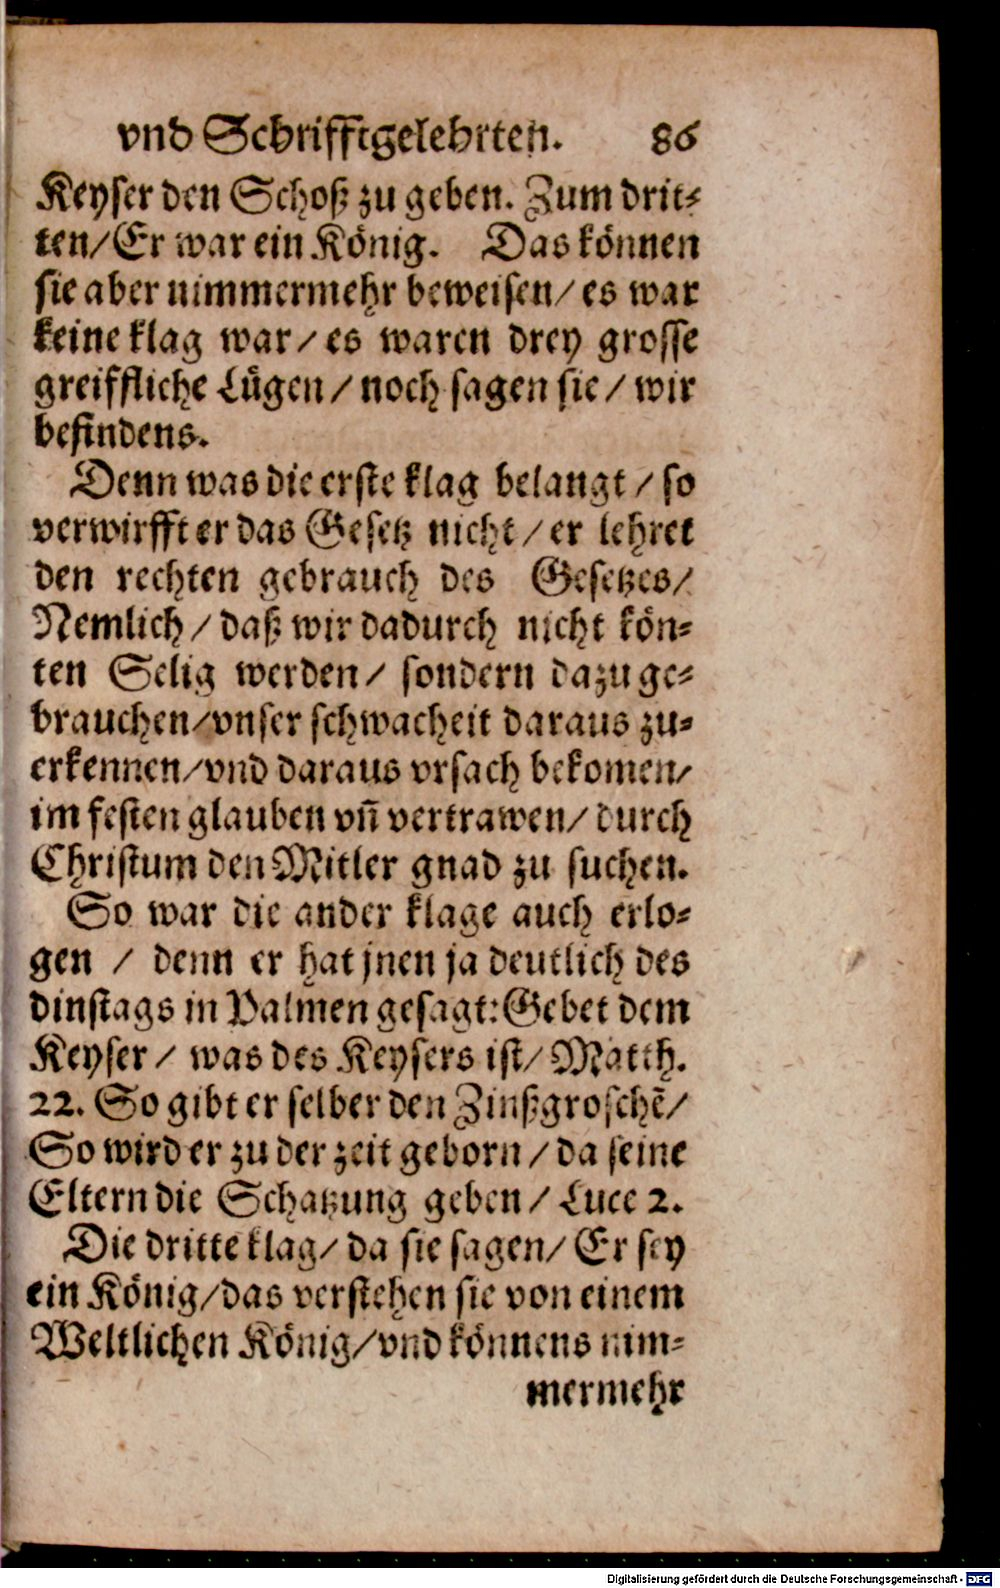 vnd Schrifftgelehrten. 86
Keyser den Schoß zu geben. Zum drit⸗
ten/Er war ein König. Das können
sie aber nimmermehr beweisen/ es war
keine klag war/ es waren drey grosse
greiffliche Lügen/ noch sagen sie/ wir
befindens.
Denn was die erste klag belangt/ so
verwirfft er das Gesetz nicht/ er lehret
den rechten gebrauch des Gesetzes/
Nemlich/ daß wir dadurch nicht kön⸗
ten Selig werden/ sondern dazu ge⸗
brauchen/vnser schwacheit daraus zu⸗
erkennen/vnd daraus vrsach bekomen/
im festen glauben vñ vertrawen/ durch
Christum den Mitler gnad zu suchen.
So war die ander klage auch erlo⸗
gen / denn er hat jnen ja deutlich des
dinstags in Palmen gesagt: Gebet dem
Keyser/ was des Keysers ist/ Matth.
22. So gibt er selber den Zinßgroschẽ/
So wird er zu der zeit geborn/ da seine
Eltern die Schatzung geben/ Luce 2.
Die dritte klag/ da sie sagen/ Er sey
ein König/das verstehen sie von einem
Weltlichen König/vnd können​s nim⸗
mermehr
Digitalisierung gefördert durch die Deutsche Forschungsgemeinschaft - DFG